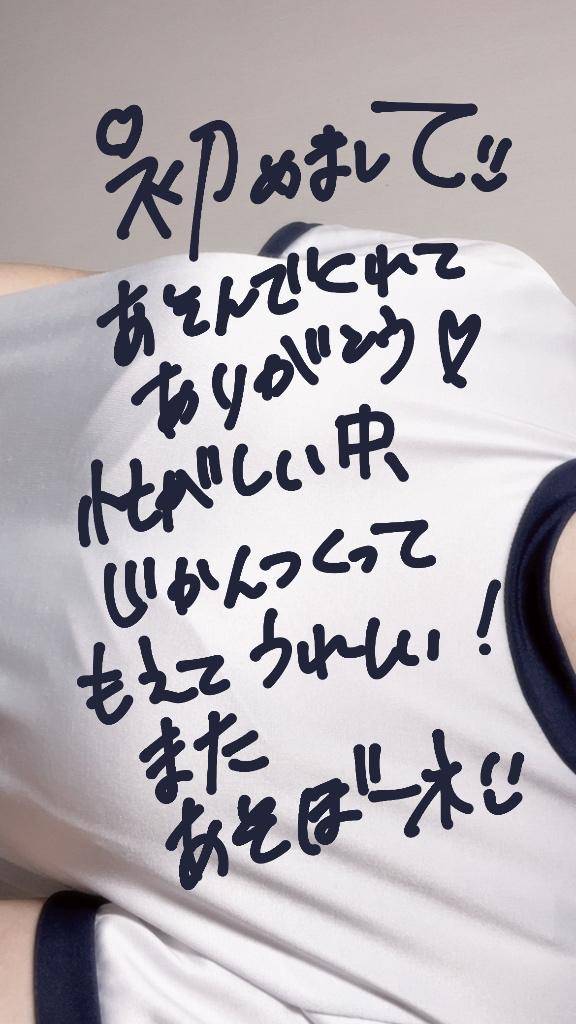 ♡初めまして!!
あそんでくれて
ありがとう♡
忙がしい中
じかんつくって
もえてうれしい!
また
あそぼーネ!!